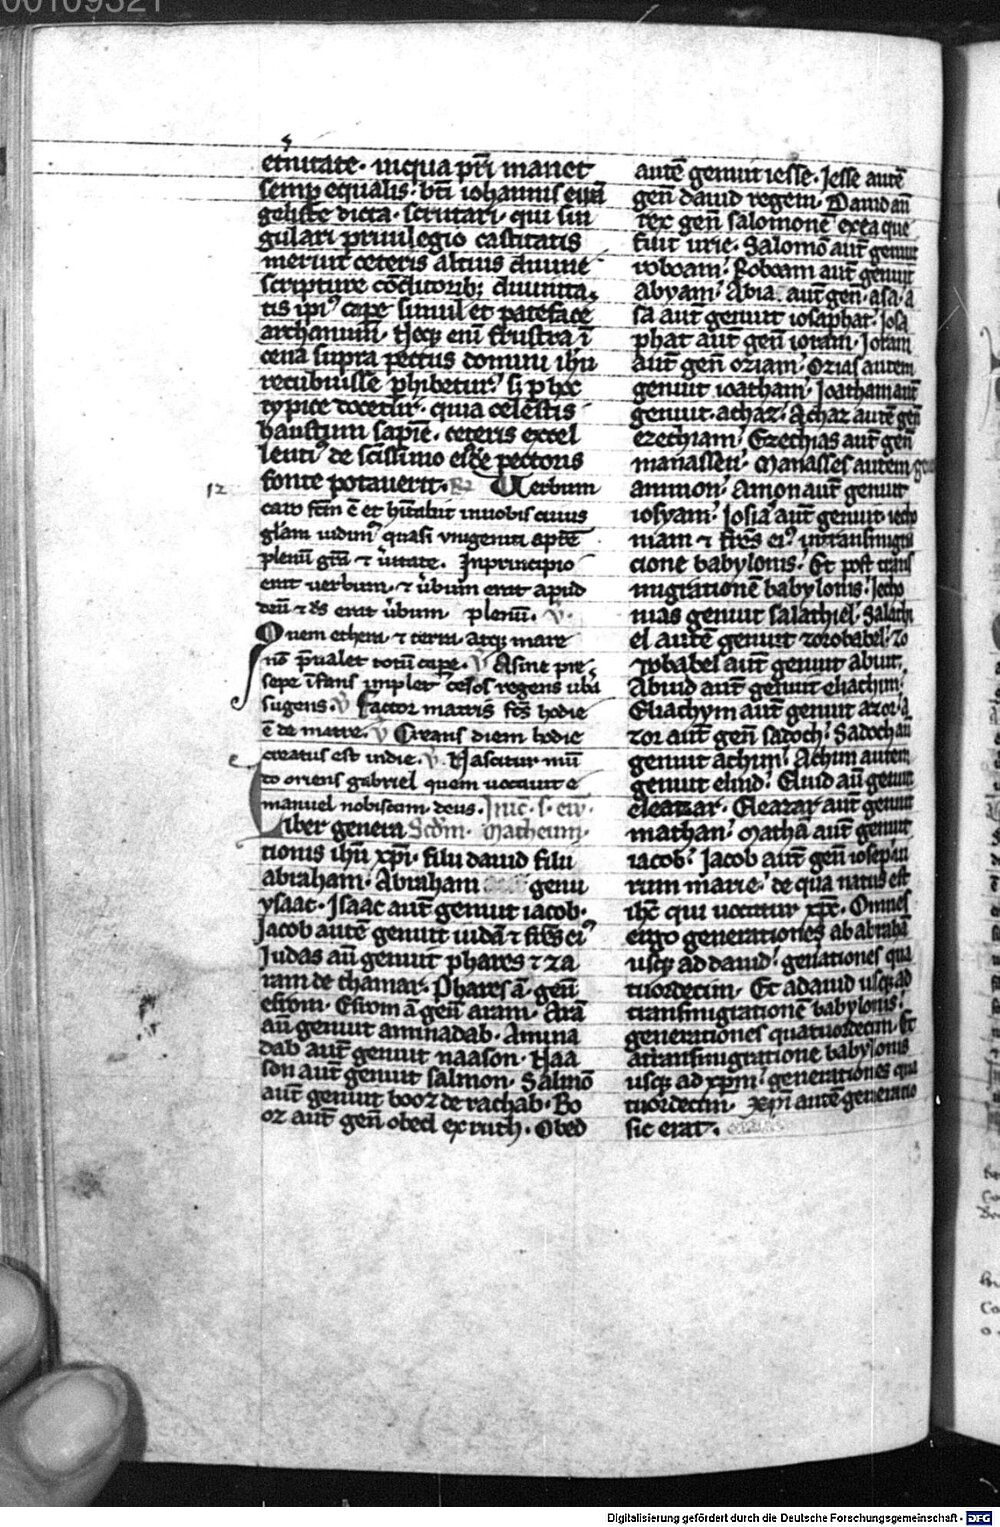 00109321
etnitate· inqua pr̄i manet
semp equalis· bt̄i iohannis euā
geliste dicta· scrutari· qui sin
gulari priuilegio castitatis
meruit ceteris altius diuine
scripture cōditorib; diuinita
tis ipiꝰ cape simul et patefacē
archanum· Necꝫ enī frustra ī
cena supra pectus domini ihū
recubuisse ꝑhibetur· si ꝑ hoc
typice docetur· quia celestis
haustum sapiē· ceteris excel
lenti de scissimo eiꝰ pectoris
fonte potauerit· R Uerbum
12
caro fcm̄ ē et hītabit inuobis cuius
glām uidimꝰ quasi vnigeniti a pr̄e
plenū gr̄a ⁊ ũitate· Inprincipio
erat uerbum· ⁊ ũbum erat apud
deū ⁊ ds̄ erat ũbum plenū· v·
Quem ethera ⁊ terra atqꝫ mare
nō p̄ualet totū cape· v Asine pre
sepe īfans implet celos regens ubā
sugens· v Factor matris fc̄s hodie
ē de matre· v Creans diem hodie
creatus est indie· v· Nascitur mū
to oriens gabriel quem uocauit e
manuel nobiscum deus· Inic̄· s· ew·
Liber genera Scdm· Matheum·
tionis ihū xp̄i· filii dauid filii
abraham· Abraham genu
ysaac· Isaac aut̄ genuit iacob·
Jacob autē genuit iudā ⁊ fr̄es eiꝰ
Judas aū genuit phares ⁊ za
ram de thamar· Phares ā· gen̄
esrom· Esrom ā gen̄ aram· Arā
aū genuit aminadab· Amina
dab aut̄ genuit naason· Naa
son aut̄ genuit salmon· Salmō
aut̄ genuit booz de rachab· Bo
oz aut̄ gen̄ obed ex ruth· Obed
autē genuit iesse· Jesse autē
gen̄ dauid regem· Dauid aū
rex gen̄ salomonē ex ea que
fuit urie· Salomō aut̄ genuit
roboam· Roboam aut̄ genuit
abyam· Abia aut̄ gen̄· asa· a
sa aut̄ genuit iosaphat· Josa
phat aut̄ gen̄ ioram· Joram
aut̄ gen̄ oziam· Ozias autem
genuit ioatham· Joatham aut̄
genuit· achaz· Achaz autē gen̄
ezechiam· Ezechias aut̄ gen̄
manassen· Manasses autem gen
ammon· Amon aut̄ genuit
iosyam· Josias aut̄ genuit iecho
niam ⁊ fr̄es eiꝰ intransmigra
cione babylonis· Et post trans
migrationē babylonis· Jecho
nias genuit salathiel· Salathi
el autē genuit zorobabel· Zo
robabel aut̄ genuit abiut·
Abiud aut̄ genuit eliachim·
Eliachym aut̄ genuit azor· A
zor aut̄ gen̄ sadoch· Sadoch aū
genuit achim· Achim autem
genuit eliud· Eliud aū genuit
eleazar· Eleazar aut̄ genuit
mathan· Mathā aut̄ genuit
iacob· Jacob aut̄ gen̄ ioseph ui
rum marie· de qua natus est
ihc̄ qui uocatur xpc̄· Omnes
ergo generationes ab abrahā
usqꝫ ad dauid· gen̄ationes qua
tuordecim· Et adauid usqꝫ ad
transmigrationē babylonis·
generationes quatuordecim· Et
atransmigratione babylonis
usqꝫ ad xpm̄· generationes qua
tuordecim· Xpī autē generatio
sic erat·
Digitalisierung gefördert durch die Deutsche Forschungsgemeinschaft - DFG